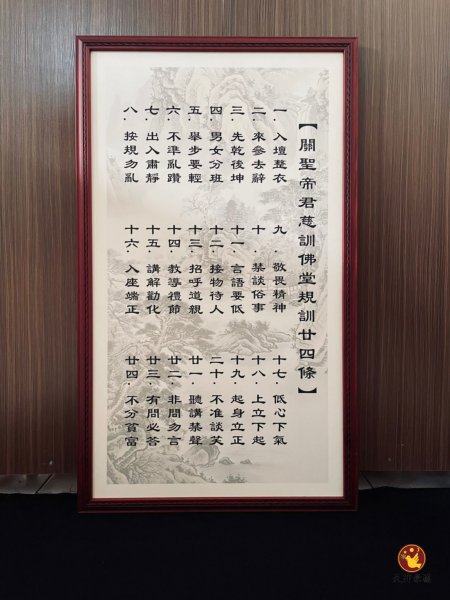 【關聖帝君慈訓佛堂規訓廿四條】
一・入壇整衣
二・來參去辭
三・先乾後坤
四・男女分班
五・舉步要輕
六・不準亂鑽
七・出入肅靜
八・按規勿亂
九・敬畏精神
十・禁談俗事
十一・言語要低
十二・接物待人
十三・招呼道親
十四・教導禮節
十五・講解勸化
十六・入座端正
十七・低心下氣
十八・上立下起
十九・起身立正
二十・不准談笑
廿一・聽講禁聲
廿二・非問勿言
廿三・有問必答
廿四・不分貧富